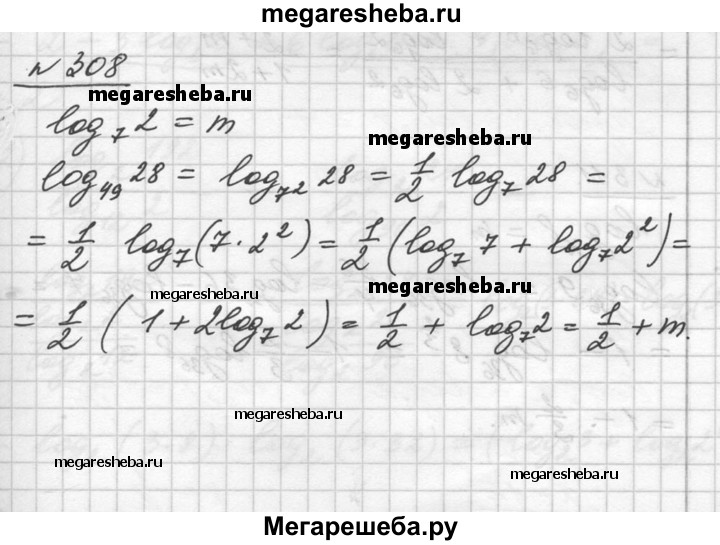 megaresheba.ru
№ 308
megaresheba.ru
log₇ 2 = m
megaresheba.ru
log₄₉ 28 = log₇² 28 = 1/2 log₇ 28 =
= 1/2 log₇(7·2²) = 1/2 (log₇ 7 + log₇ 2²) =
megaresheba.ru
megaresheba.ru
= 1/2 (1 + 2log₇ 2) = 1/2 + log₇ 2 = 1/2 + m.
megaresheba.ru
megaresheba.ru
megaresheba.ru
Мегарешеба.ру